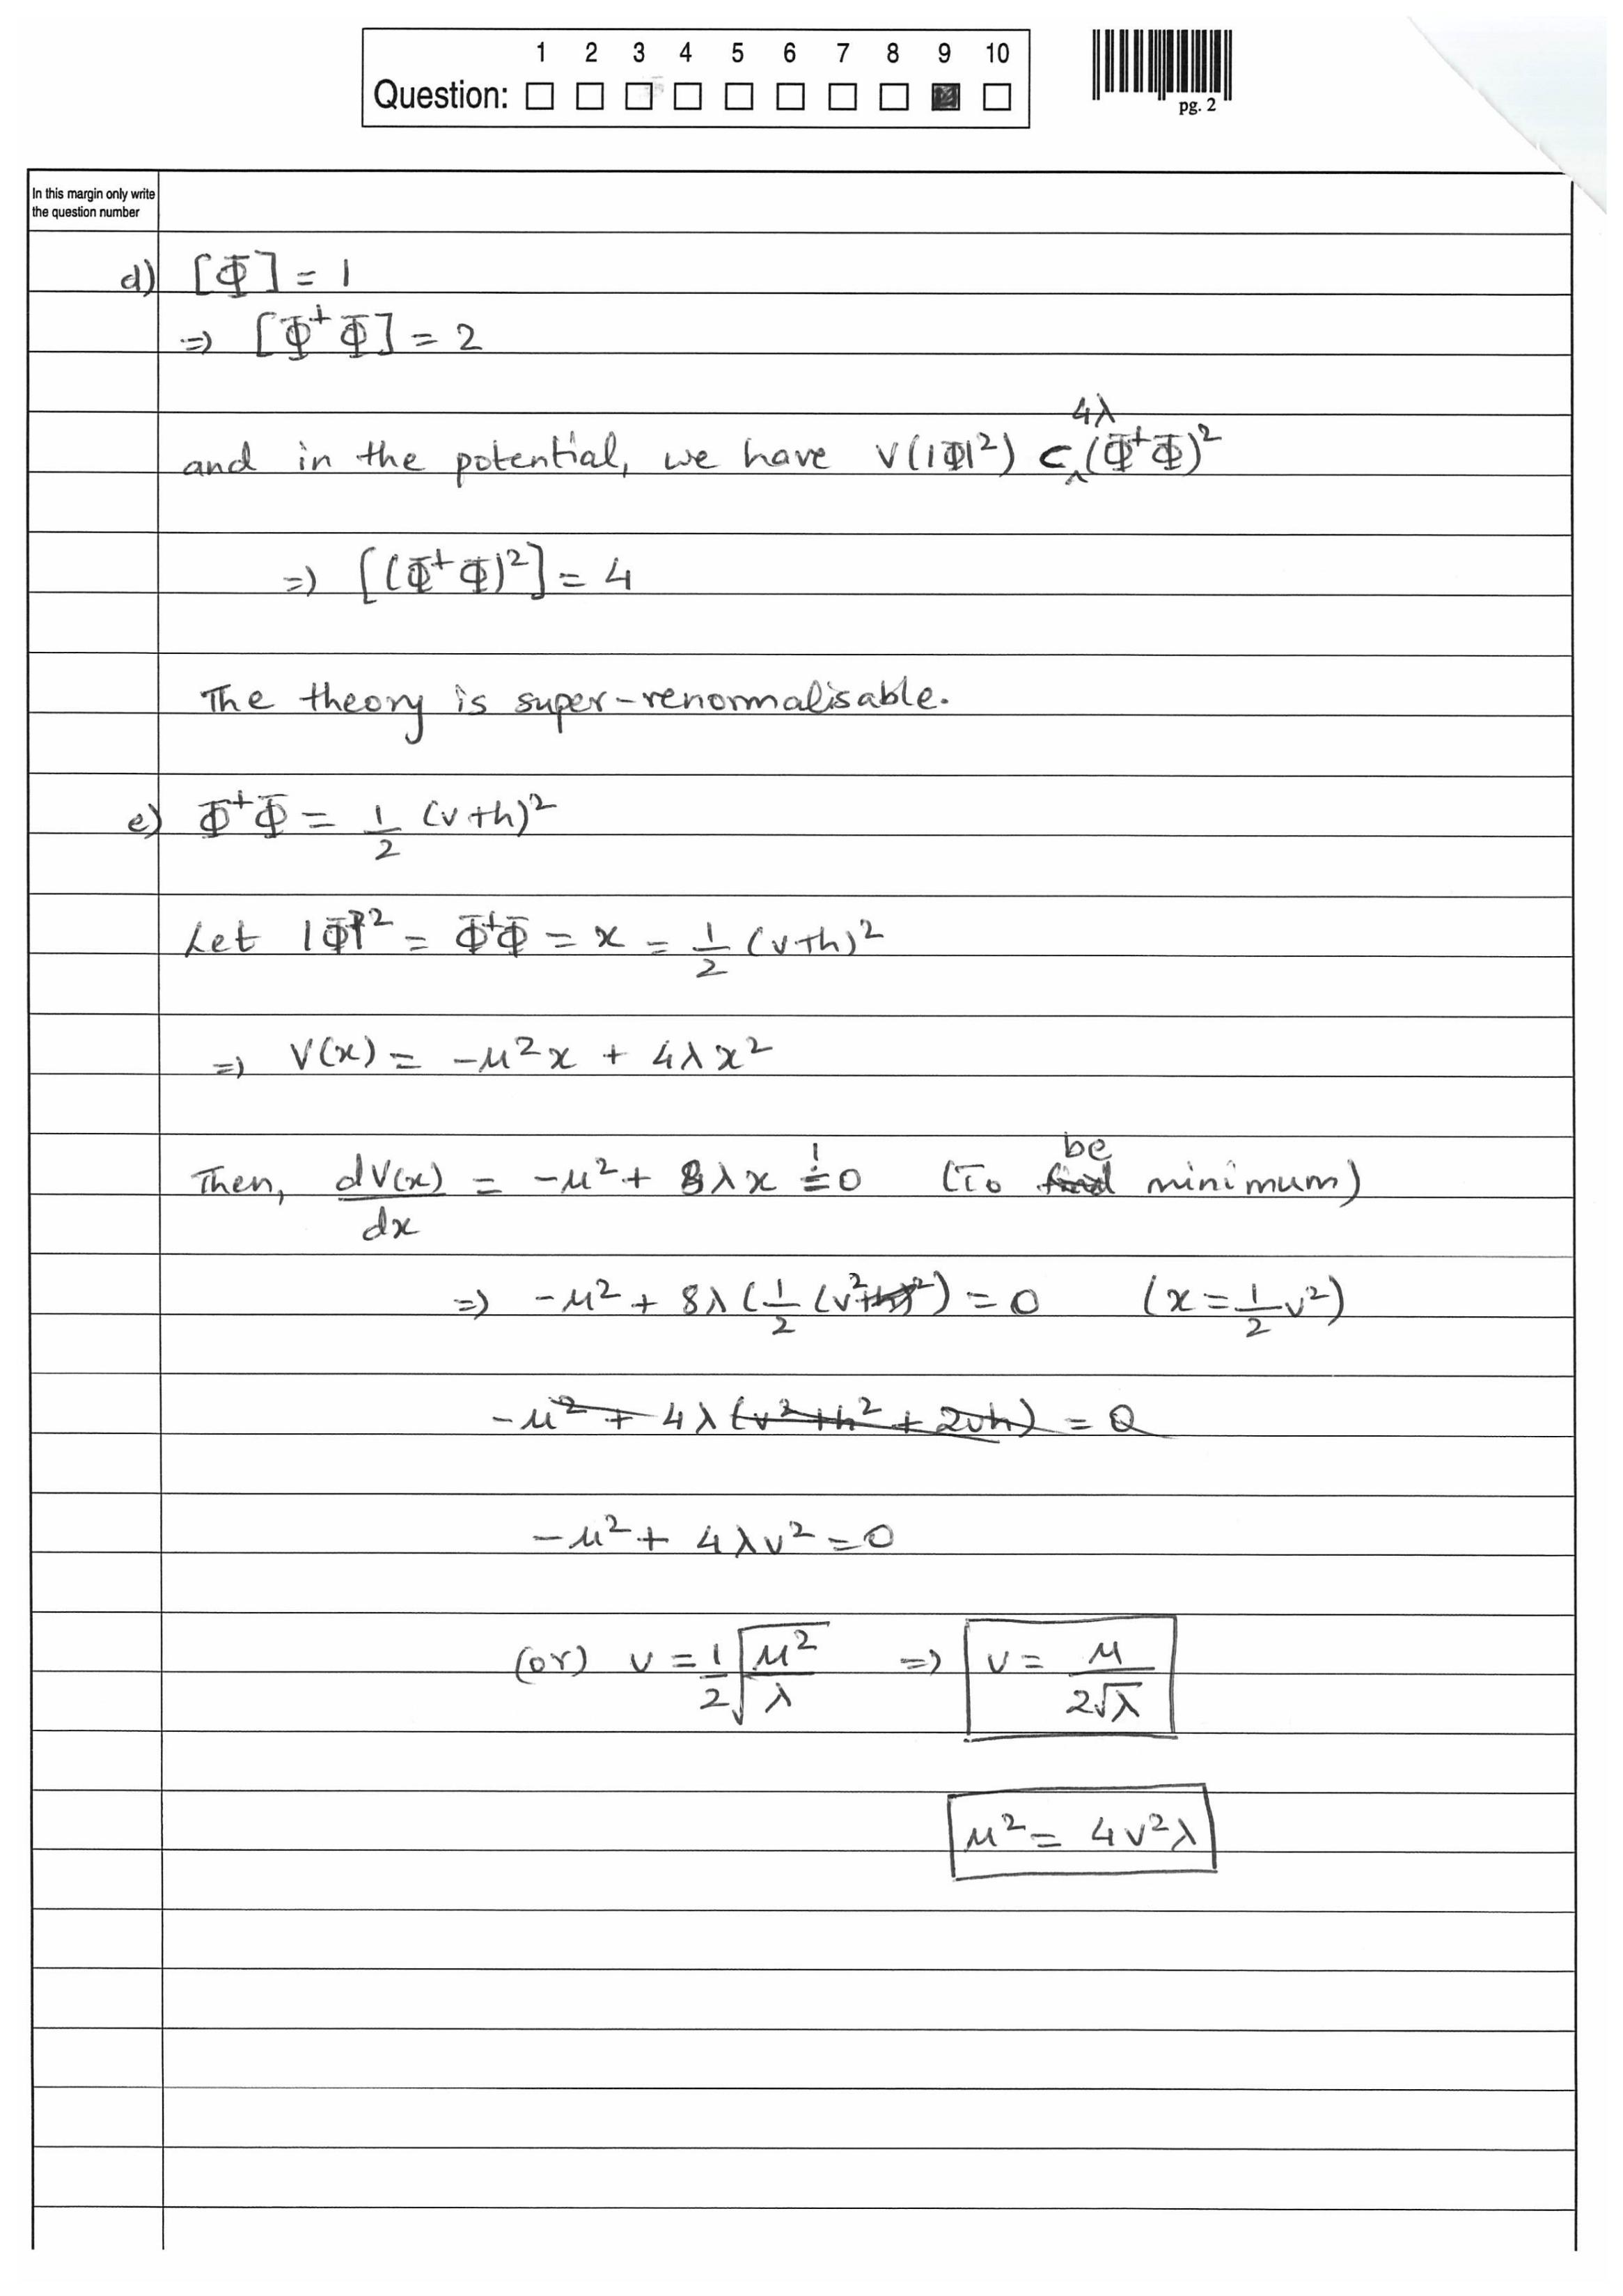 1 2 3 4 5 6 7 8 9 10
Question:
pg. 2
In this margin only write
the question number
d) [Φ] = 1
=> [Φ⁺Φ] = 2
4λ
and in the potential, we have V(|Φ|²) ⊂ (Φ⁺Φ)²
=> [(Φ⁺Φ)²] = 4
The theory is super-renormalisable.
e) Φ⁺Φ = 1/2 (v+h)²
Let |Φ|² = Φ⁺Φ = x = 1/2 (v+h)²
=> V(x) = -μ²x + 4λx²
be
Then, dV(x)/dx = -μ² + 8λx != 0 (To find minimum)
=> -μ² + 8λ(1/2 (v²+h)²) = 0 (x = 1/2 v²)
-μ² + 4λ(v²+h²+2vh) = 0
-μ² + 4λv² = 0
(or) v = 1/2 √(μ²/λ) => v = μ/(2√λ)
μ² = 4v²λ